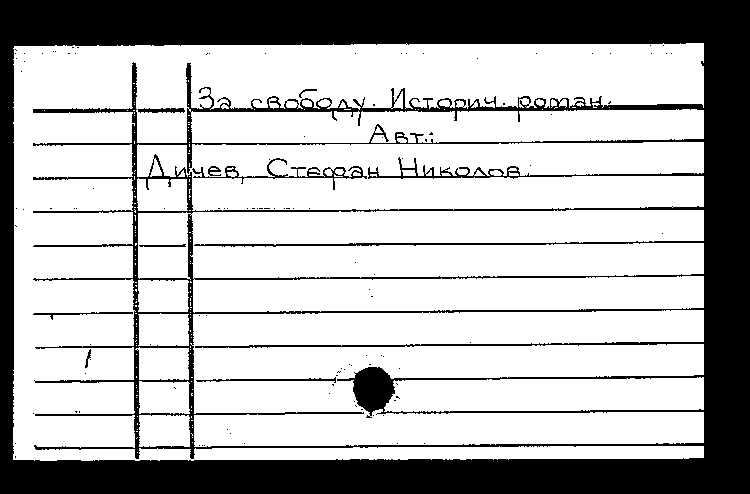 За свободу. Историч. роман.
Авт.:
Дичев, Стефан Николов.